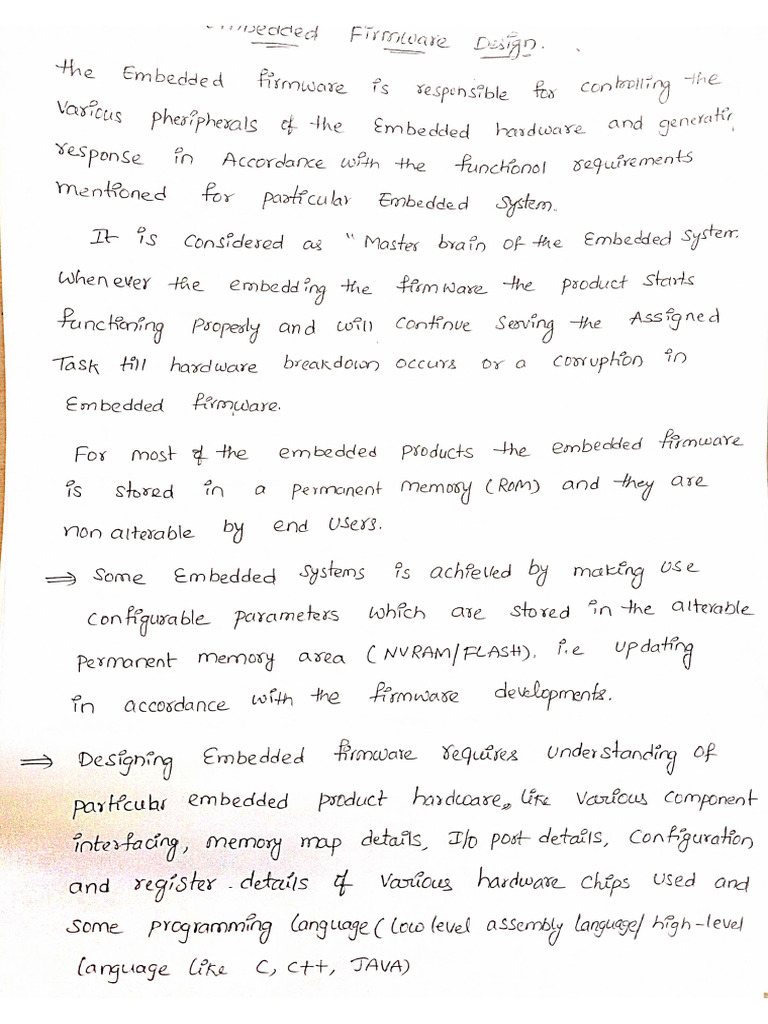 Embedded Firmware Design.
the Embedded firmware is responsible for controlling the
various pheripherals of the Embedded hardware and generatin
response in Accordance with the functional requirements
mentioned for particular Embedded System.
It is considered as "Master brain of the Embedded System.
Whenever the embedding the firmware the product starts
functioning Properly and will continue Serving the Assigned
Task till hardware breakdown occurs or a corruption in
Embedded firmware.
For most of the embedded products the embedded firmware
is stored in a permanent memory (ROM) and they are
non alterable by end users.
⇒ Some Embedded systems is achieved by making use
configurable parameters which are stored in the alterable
permanent memory area (NVRAM/FLASH). i.e updating
in accordance with the firmware developments.
⇒ Designing Embedded firmware requires understanding of
particular embedded product hardware, like various component
interfacing, memory map details, I/o post details, Configuration
and register details of various hardware chips used and
some programming language (low level assembly language/high-level
language like C, C++, JAVA)